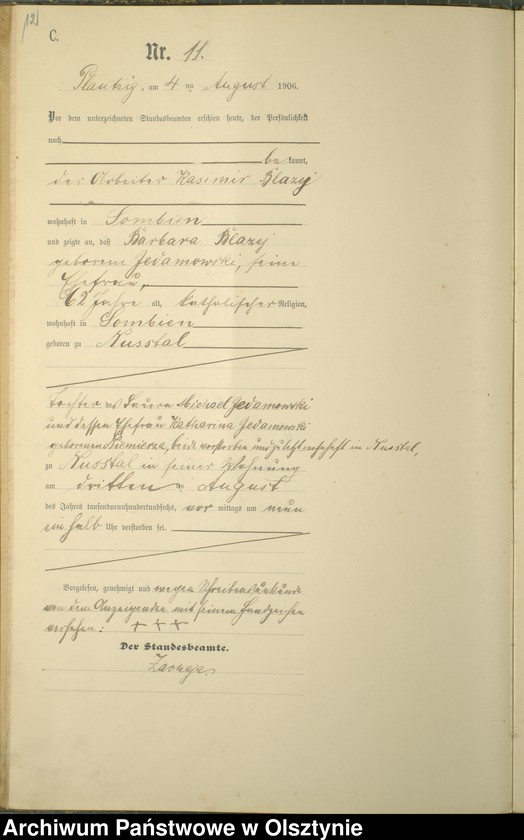 121
C.
Nr. 11.
Plautzig, am 4 ten August 1906.
Vor dem unterzeichneten Standesbeamten erschien heute, der Persönlichkeit
nach
be kannt,
der Arbeiter Kasimir Blazy
wohnhaft in Sombien
und zeigte an, daß Barbara Blazy
geborene Jedamowski, seine
Ehefrau,
62 Jahre alt, katholischer Religion,
wohnhaft in Sombien
geboren zu Nusstal
Tochter des Michael Jedamowski
und dessen Ehefrau Katharina Jedamowski
geborenen Niemierza, beide verstorben und zuletzt wohnhaft in Nusstal,
zu Nusstal in seiner Wohnung
am dritten August
des Jahres tausendneunhundertundsechs, vor mittags um neun
ein halb Uhr verstorben sei.
Vorgelesen, genehmigt und wegen Schreibensunkunde
von dem Anzeigenden mit seinem Handzeichen
versehen: + + +
Der Standesbeamte.
Archiwum Państwowe w Olsztynie